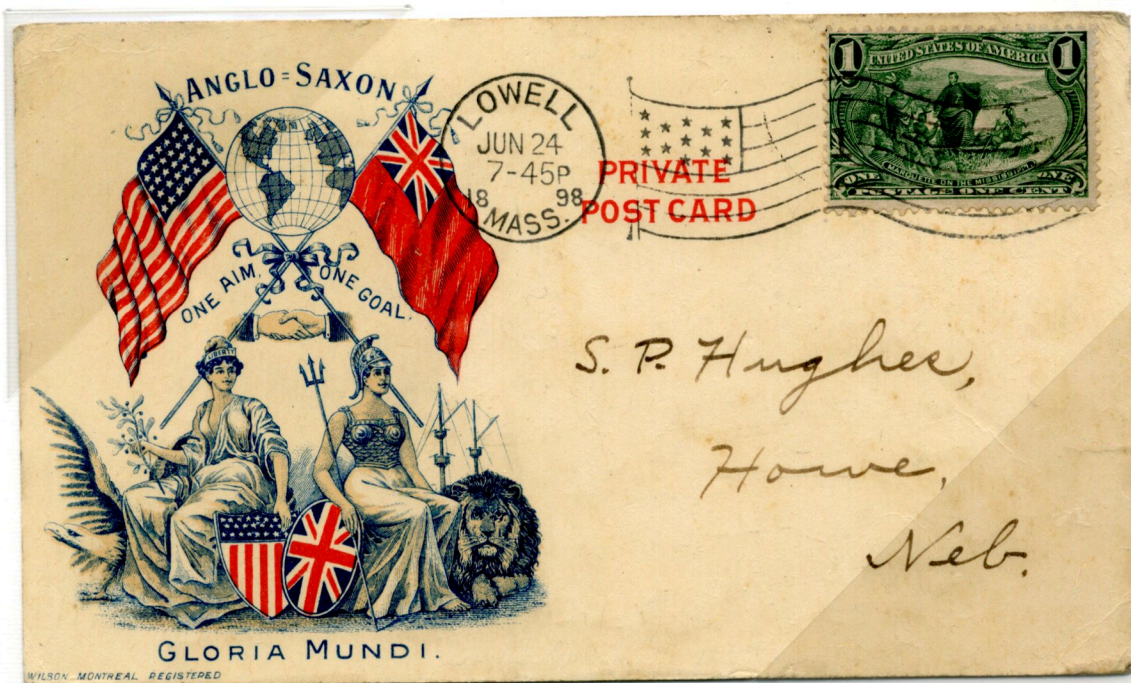 ANGLO=SAXON
ONE AIM,
ONE GOAL.
LIBERTY
GLORIA MUNDI.
WILSON MONTREAL REGISTERED
LOWELL
JUN 24
7-45P
18 98
MASS.
PRIVATE
POST CARD
1 1
UNITED STATES OF AMERICA
MARQUETTE ON THE MISSISSIPPI
ONE ONE
POSTAGE ONE CENT
S. P. Hughes,
Howe,
Neb.